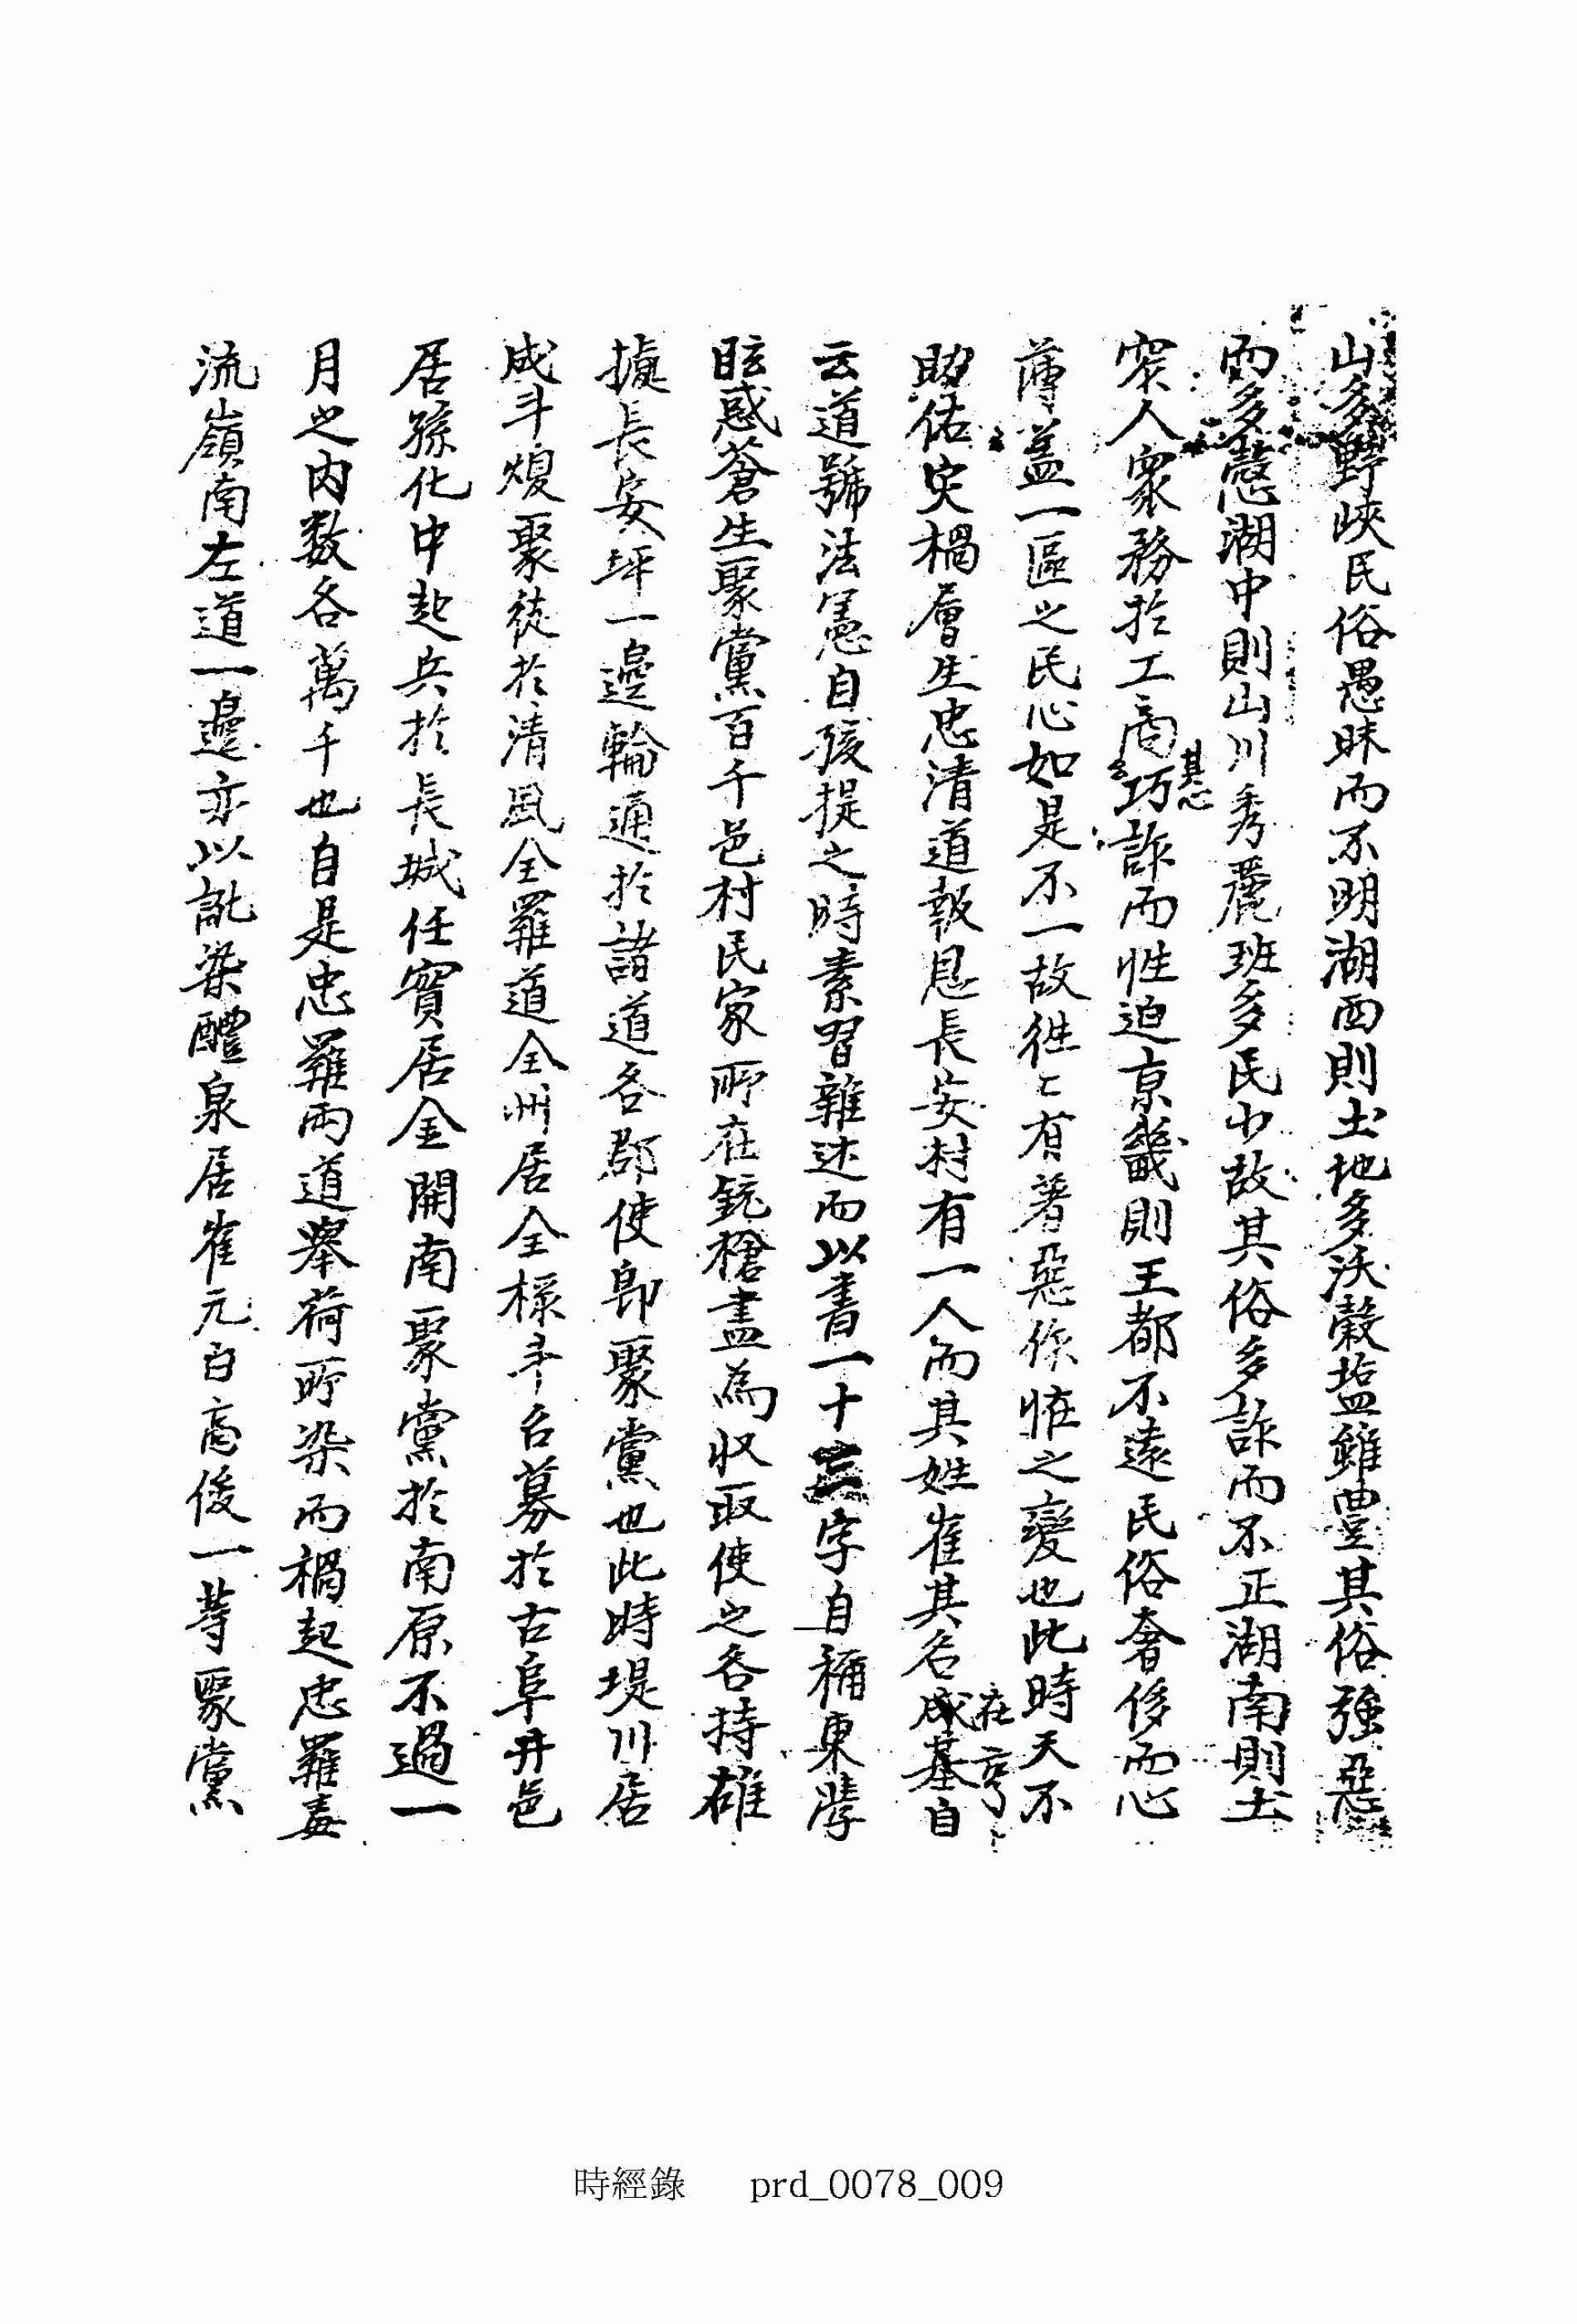 山多野峽民俗愚昧而不明湖西則土地多沃穀塩雖豊其俗強惡
而多慝湖中則山川秀麗班多民小故其俗多詐而不正湖南則土
窄人衆務於工商其心巧詐而性迫京畿則王都不遠民俗奢侈而心
薄盖一區之民心如是不一故徃〻有著惡作恠之變也此時天不
助佑灾禍層生忠清道報恩長安村有一人而其姓崔其名成基自
在
云道號法憲自孩提之時素習雜述而以書一十三字自稱東學
眩惑蒼生聚黨百千邑村民家所在銃槍盡為收取使之各持雄
據長安坪一邊輪通於諸道各郡使即聚黨也此時堤川居
成斗煥聚徒於清風全羅道全州居全祿斗召募於古阜井邑
居孫化中起兵於長城任實居金開南聚黨於南原不過一
月之内数各萬千也自是忠羅兩道舉荷所染而禍起忠羅毒
流嶺南左道一邊亦以訛染醴泉居崔元白高俊一等聚黨
時經錄 prd_0078_009